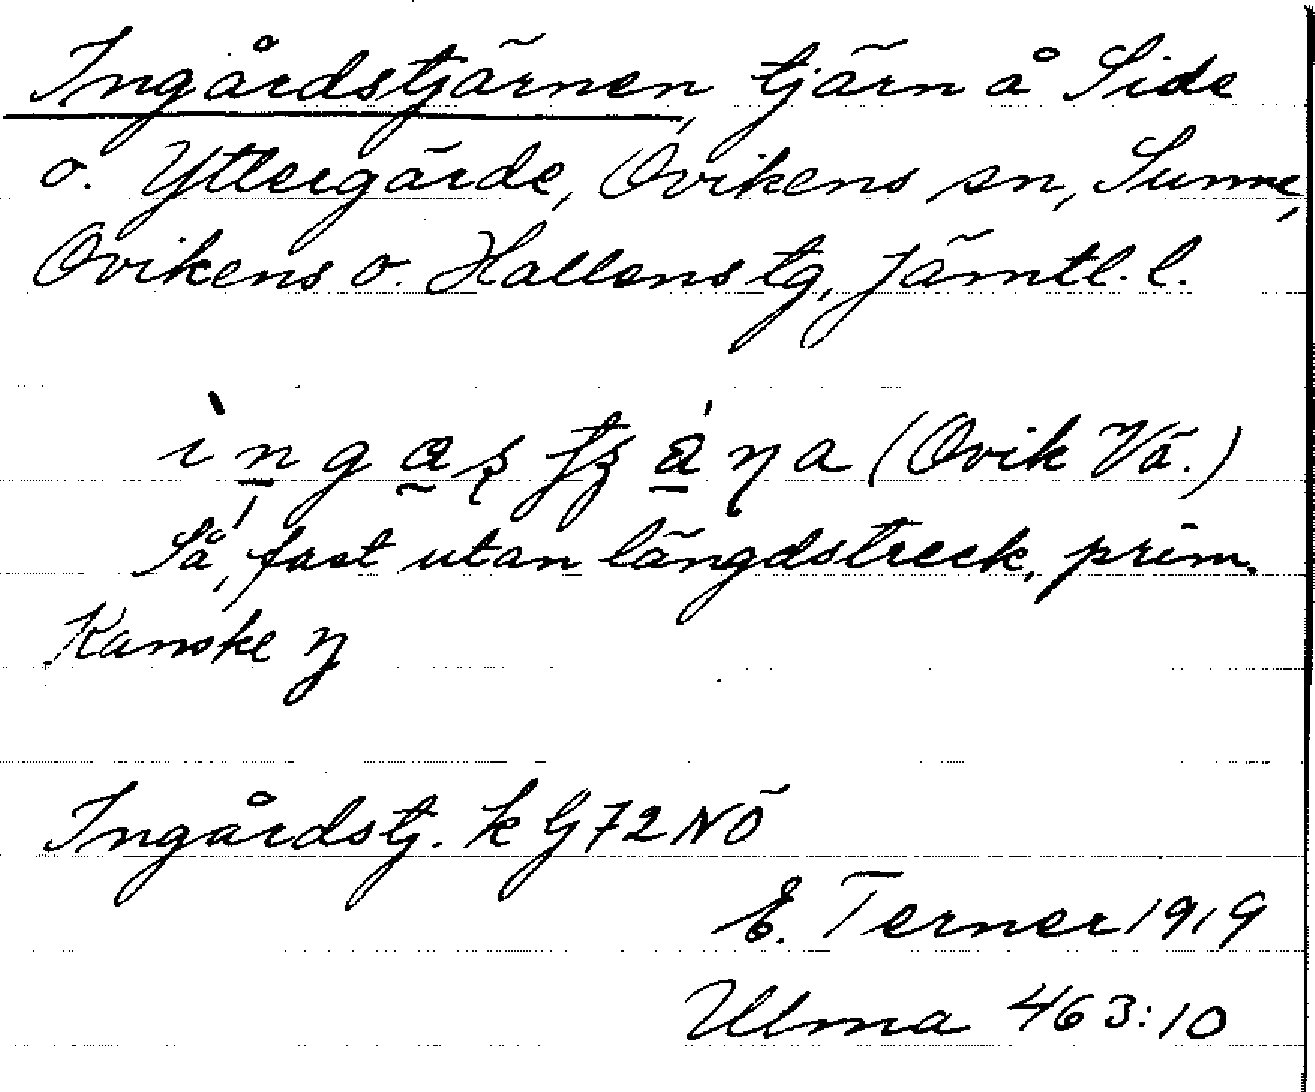 Ingårdstjärnen, tjärn å Side
o. Yttergärde, Ovikens sn, Sunne,
Ovikens o. Hallens tg, Jämtl. l.
(Ovik Vä.)
Så, fast utan längdstreck, prim.
Kanske ŋ
Ingårdstj. k G72NÖ
E. Terner 1919
Ulma 463:10